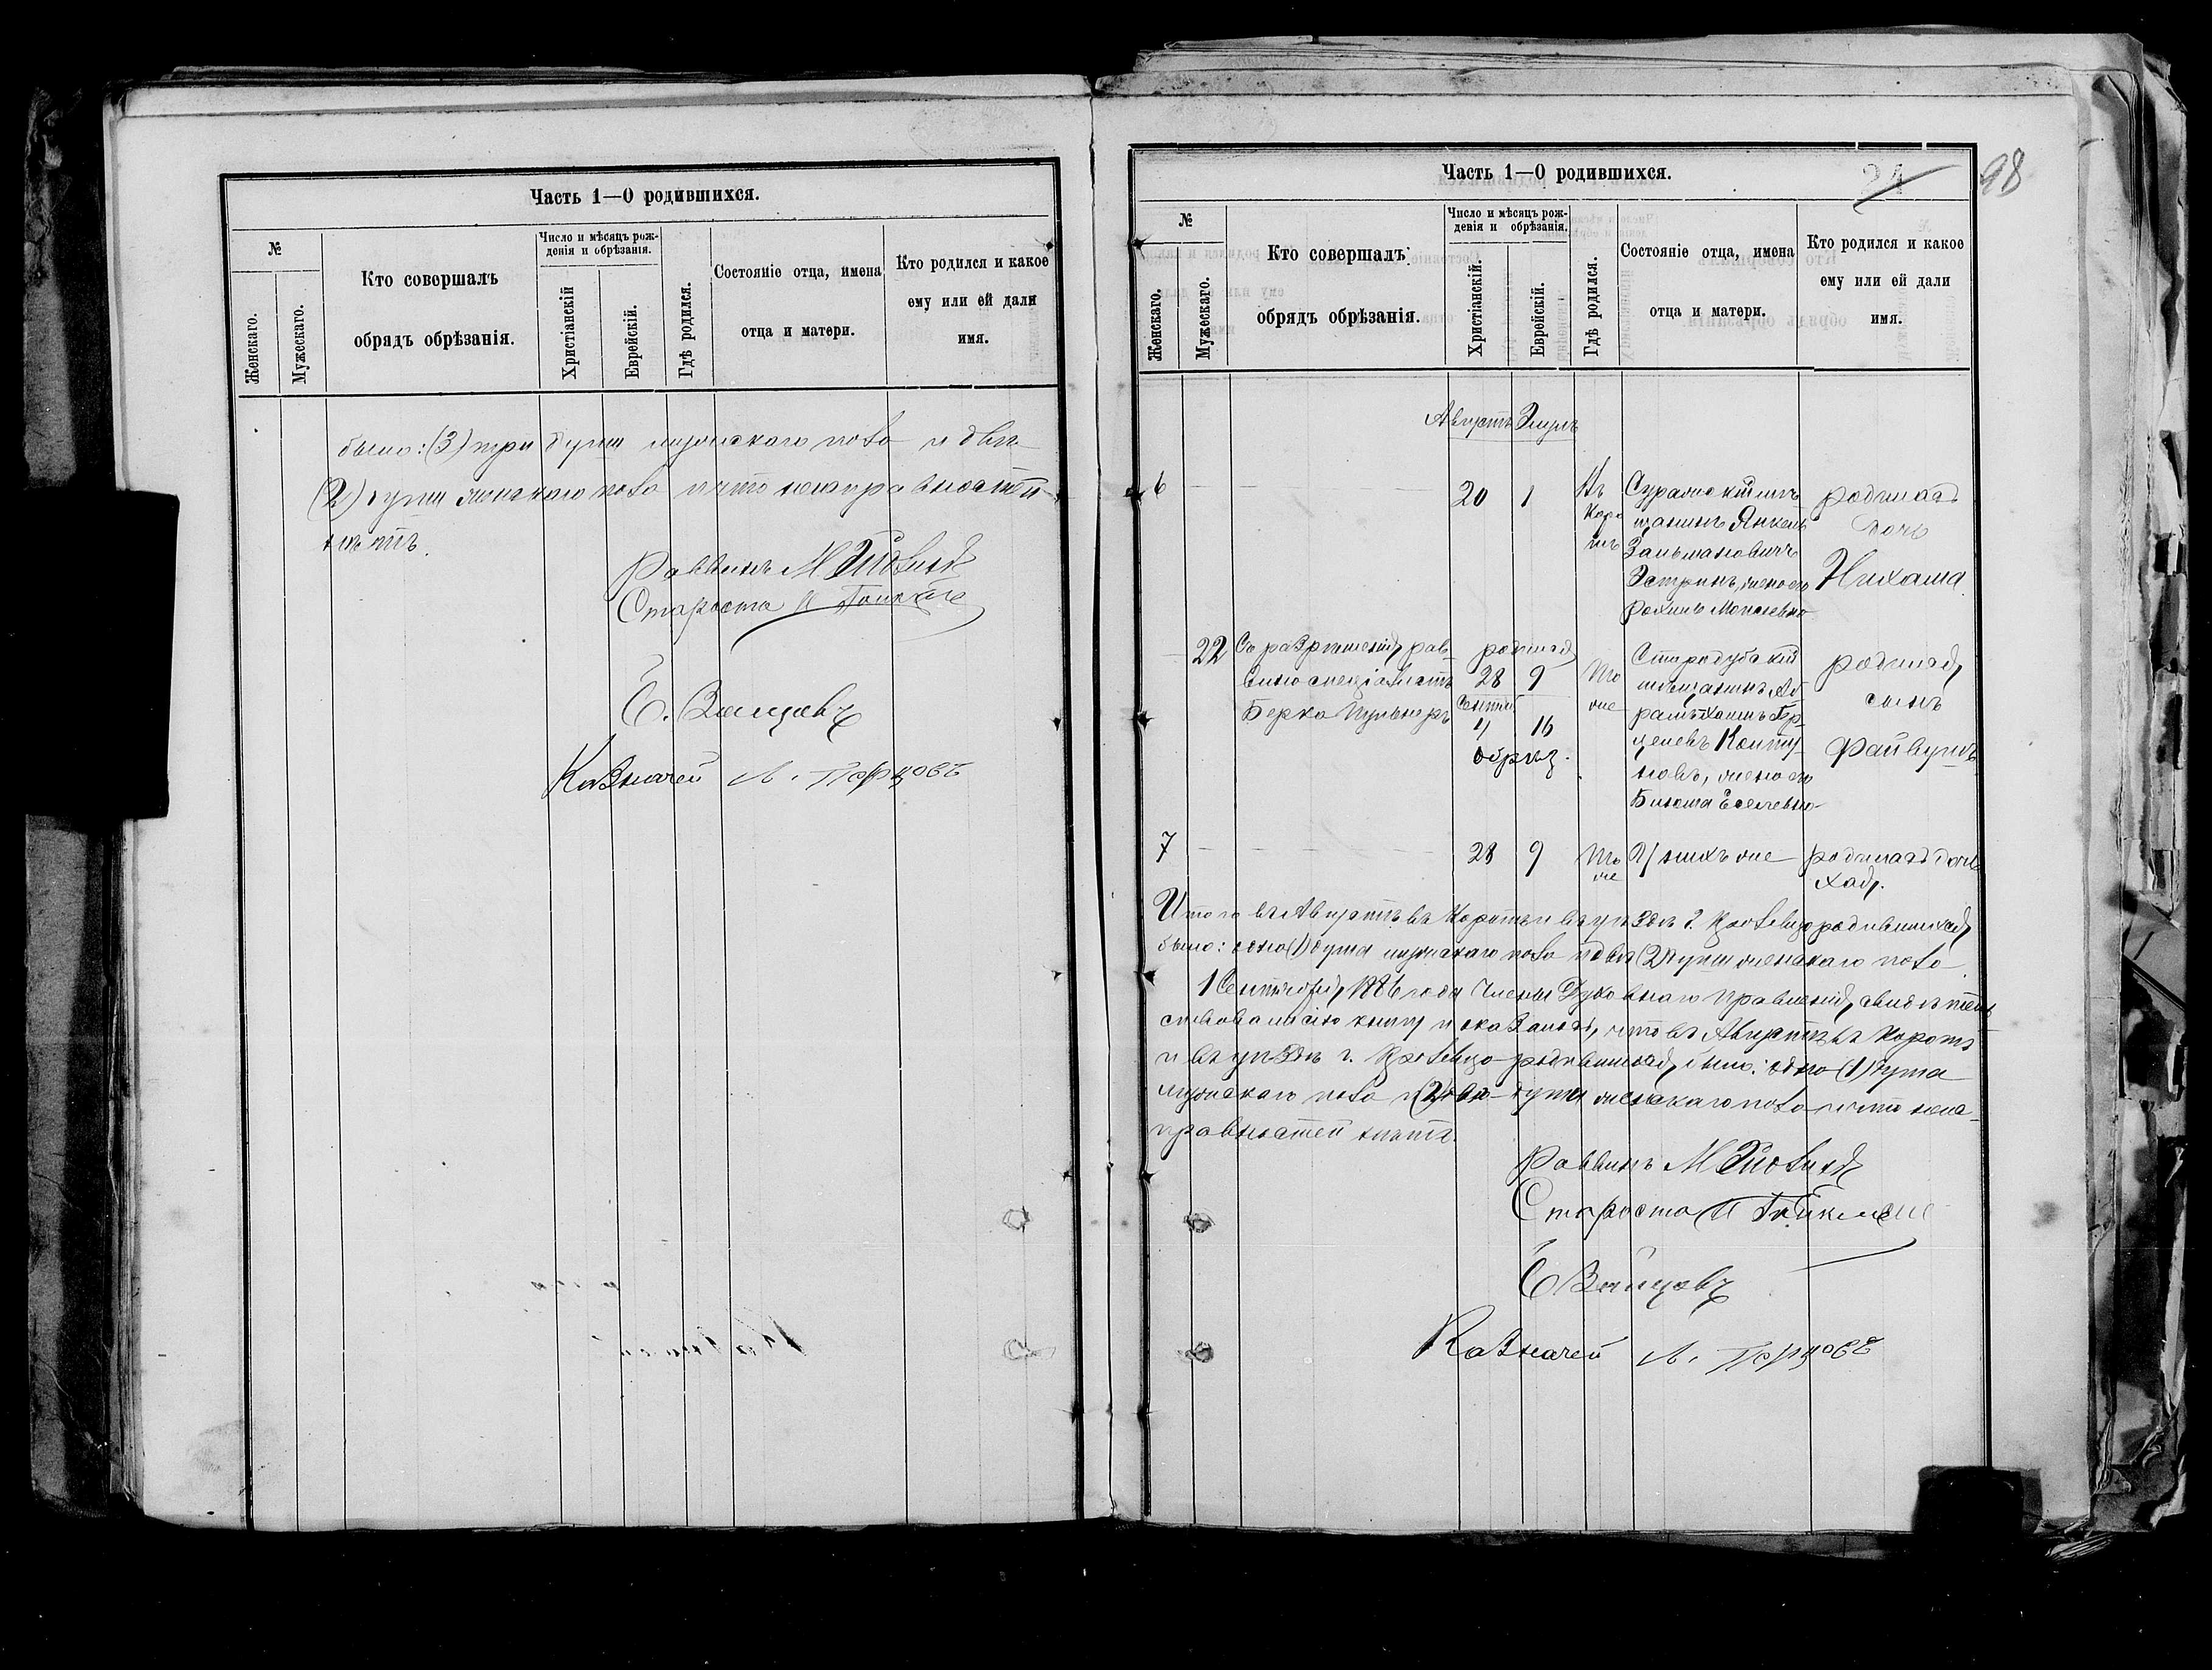 Часть 1—О родившихся.
№
Женскаго.
Мужескаго.
Кто совершалъ
обрядъ обрѣзанія.
Число и мѣсяцъ рож-
денія и обрѣзанія.
Христіанскій
Еврейскій.
Гдѣ родился.
Состояніе отца, имена
отца и матери.
Кто родился и какое
ему или ей дали
имя.
было: (3) три души мужскаго пола и двѣ
(2) души женскаго пола и что неисправностей
нѣтъ.
Раввинъ М
Староста
Е.
Казначей Л.
Часть 1—О родившихся.
24
98
№
Женскаго.
Мужескаго.
Кто совершалъ
обрядъ обрѣзанія.
Число и мѣсяцъ рож-
денія и обрѣзанія.
Христіанскій.
Еврейскій.
Гдѣ родился.
Состояніе отца, имена
отца и матери.
Кто родился и какое
ему или ей дали
имя.
Августъ Элулъ
6
20
1
Въ
Коро
пѣ
мѣ
щанинъ Янкель
Залмановичъ
Эстринъ, жена его
родилась
дочь
Нихама
22
Съ разрѣшенія рав
вина спеціалистъ
Берка
родился
28 9
Сентяб.
4 16
обрѣз.
То
же
Стародубскій
мѣщанинъ Аб
рамъ Хаимъ Бер
новъ, жена его
родился
сынъ
Файвушъ
7
28
9
То
же
У нихъ же
родилась дочь
Хая.
Итого въ Августѣ въ Коропѣ и въ уѣздѣ г. Кролевца родившихся
было: одна (1) душа мужскаго пола и двѣ (2) души женскаго пола
1 Сентября 1886 года Члены Духовнаго Правленія, свидѣтель
ствовали сію книгу и оказалось, что въ Августѣ въ Коропѣ
и въ уѣздѣ г. Кролевца родившихся было: одна (1) душа
мужскаго пола и (2) двѣ души женскаго пола и что неис-
правностей нѣтъ.
Раввинъ М
Староста
Е
Казначей Л.